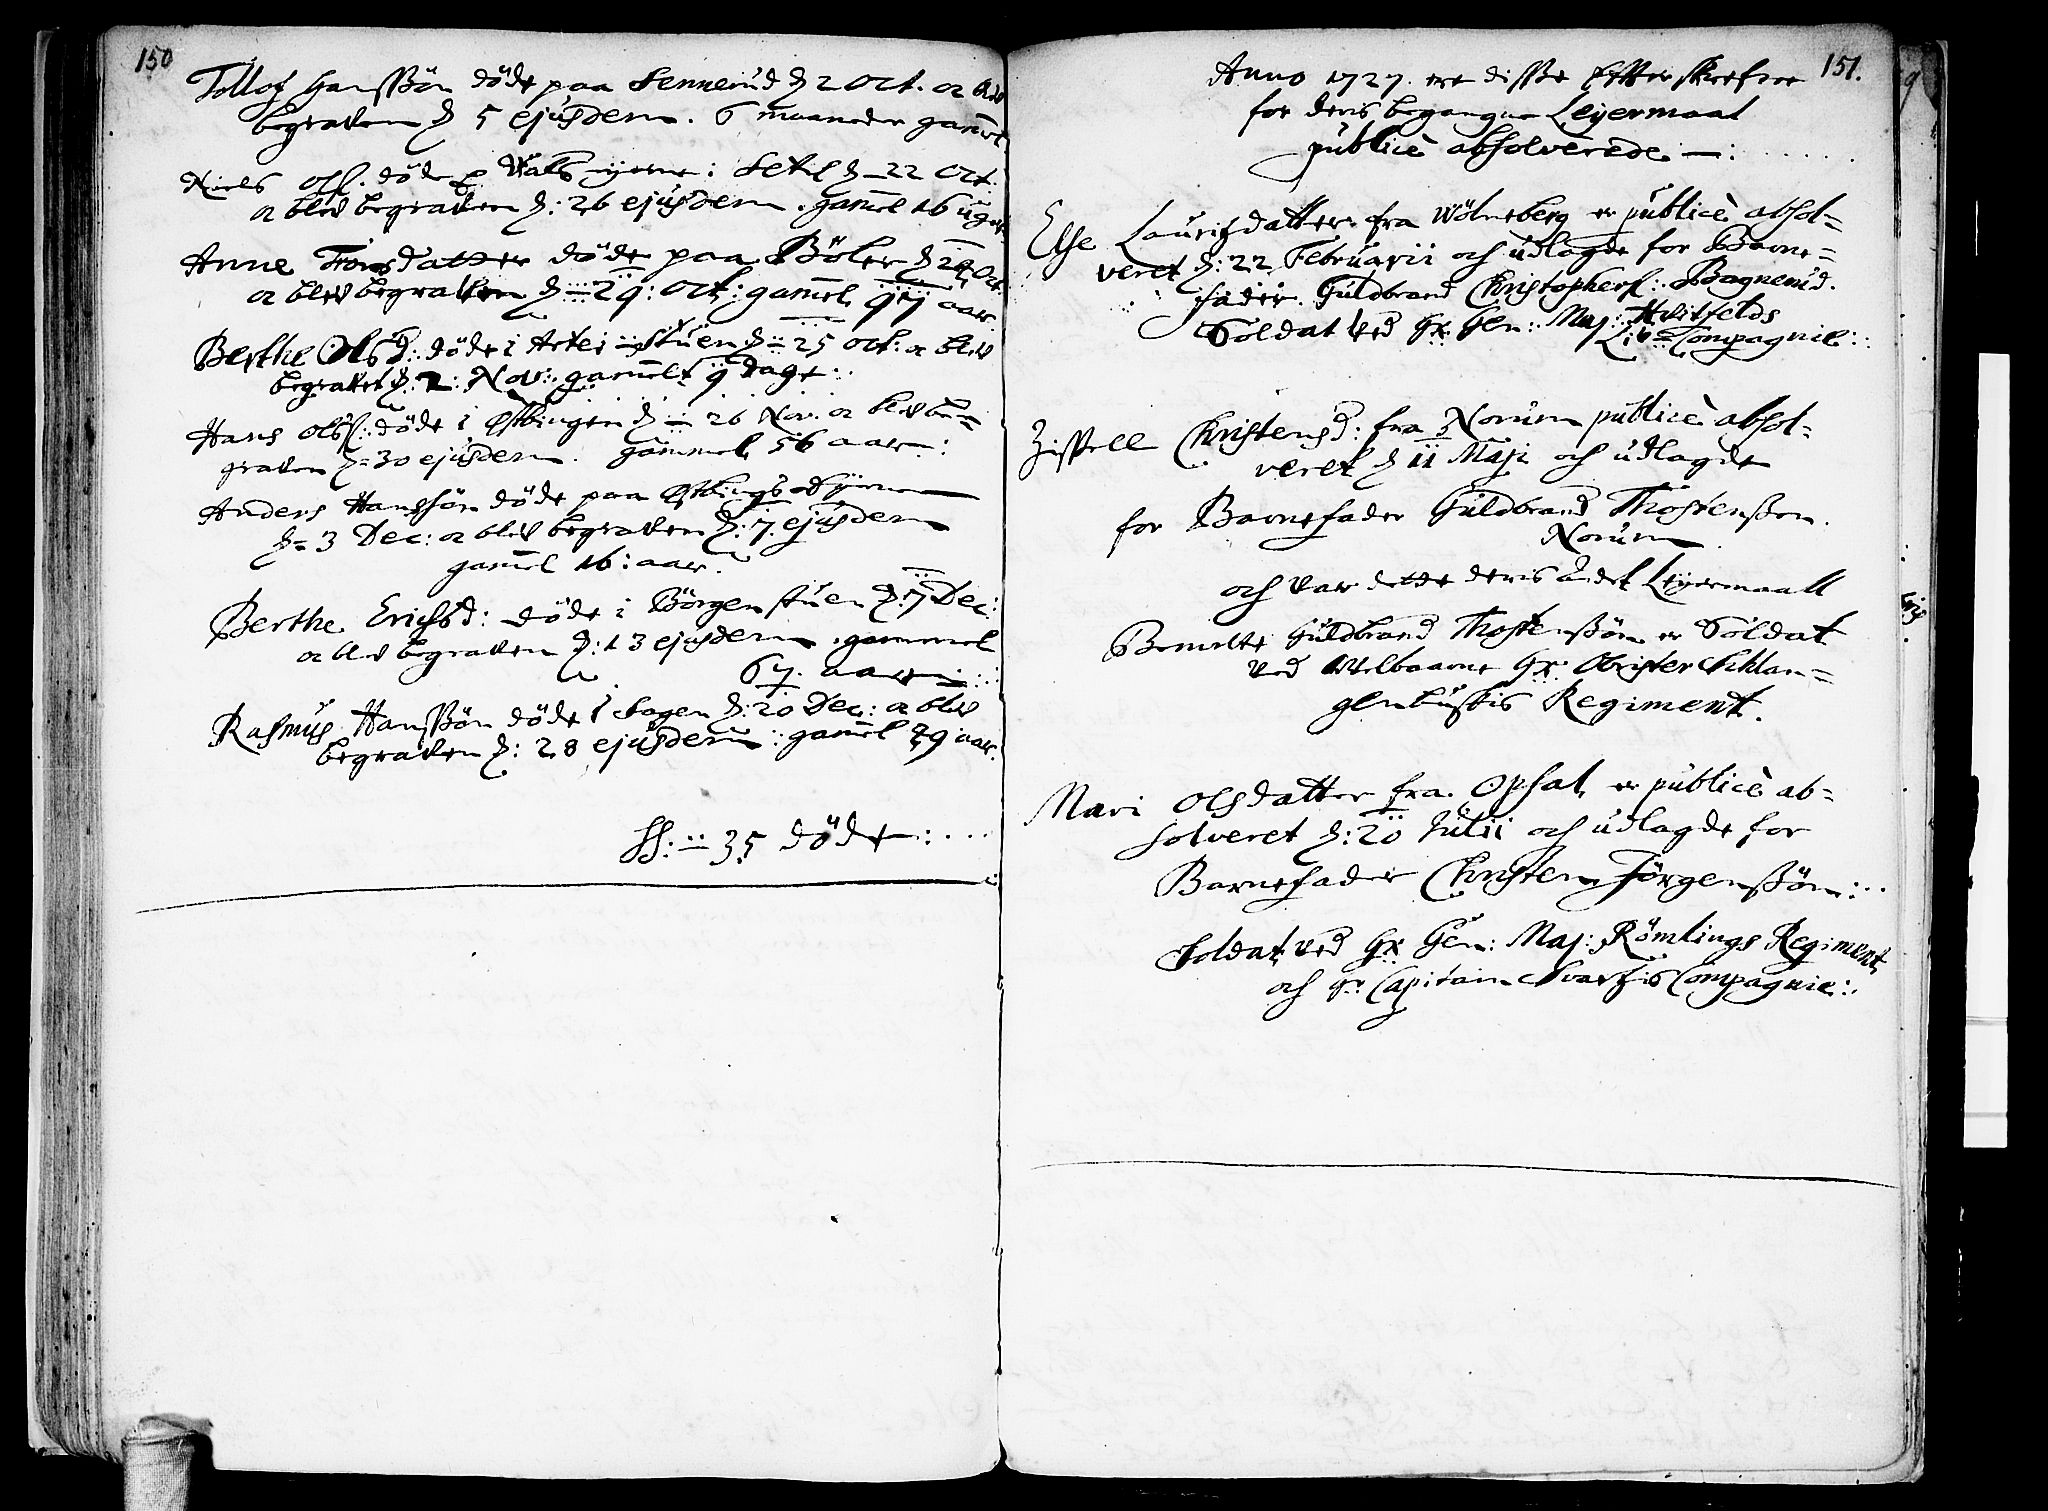 150
Tollof Hanssøn døde paa Sennerud d 2 Oct. oc blev
begraven d 5 ejusdem. 6 maaneder gamel
Niels Ols. døde p Vals ejerne: Setel d 22 Oct.
oc blev begraven d: 26 ejusdem. gamel 16 uger
Anne datter døde paa Böler d
oc blev begraven d 29: Oct: gamel aar
Berthe Olsd: døde i stuen d 25 Oct: oc blev
begravet d: 2: Nov: gamel 9 dage
Hans Ols: døde i Østbingen d 26 Nov: oc blev be=
graven d= 30 ejusdem. gammel 56 aar:
Anders Hanssön døde paa Østbings
d= 3 Dec: oc blev begraven d: 7. ejusdem
gamel 16: aar.
Berthe Erichsd: døde i Börgenstuen d: 7 Dec:
oc blev begraven d: 13 ejusdem. gammel
67. aar
Rasmus Hanssön døde i Hagen d: 20 Dec: oc blev
begraven d: 28 ejusdem: gamel 29 aar.
SS: 35 døde:
151.
Anno 1727. ere disse Efterskrefne
for deris begangne Leyermaal
publicè absolverede:
Else Lauritzdatter fra Wölneberg er publicè absol=
veret d: 22 Februarii och udlagde for Barne=
fader. Guldbrand Christophers: Bagnerud.
Soldat ved Hr. Gen: Maj: Hvitfelds
Liv=Compagnie:
Zissell Christensd: fra Norum publicè absol=
veret d 11 Maji och udlagde
for Barnefader Guldbrand Thostenssen.
Norum
och var dette deris andet Leyermaall
Bemelte Guldbrand Thostenssön er Soldat
ved Welbaarne Hr. Obrister Schlan=
genbuskis Regiment.
Mari Olsdatter fra Opsal er publicè ab=
solveret d: 20 Julii och udlagde for
Barnefader Christen Jörgenssön:
Soldat ved Hr Gen: Maj: Römlings Regiment
och Hr: Capitain Svartzis Compagnie: